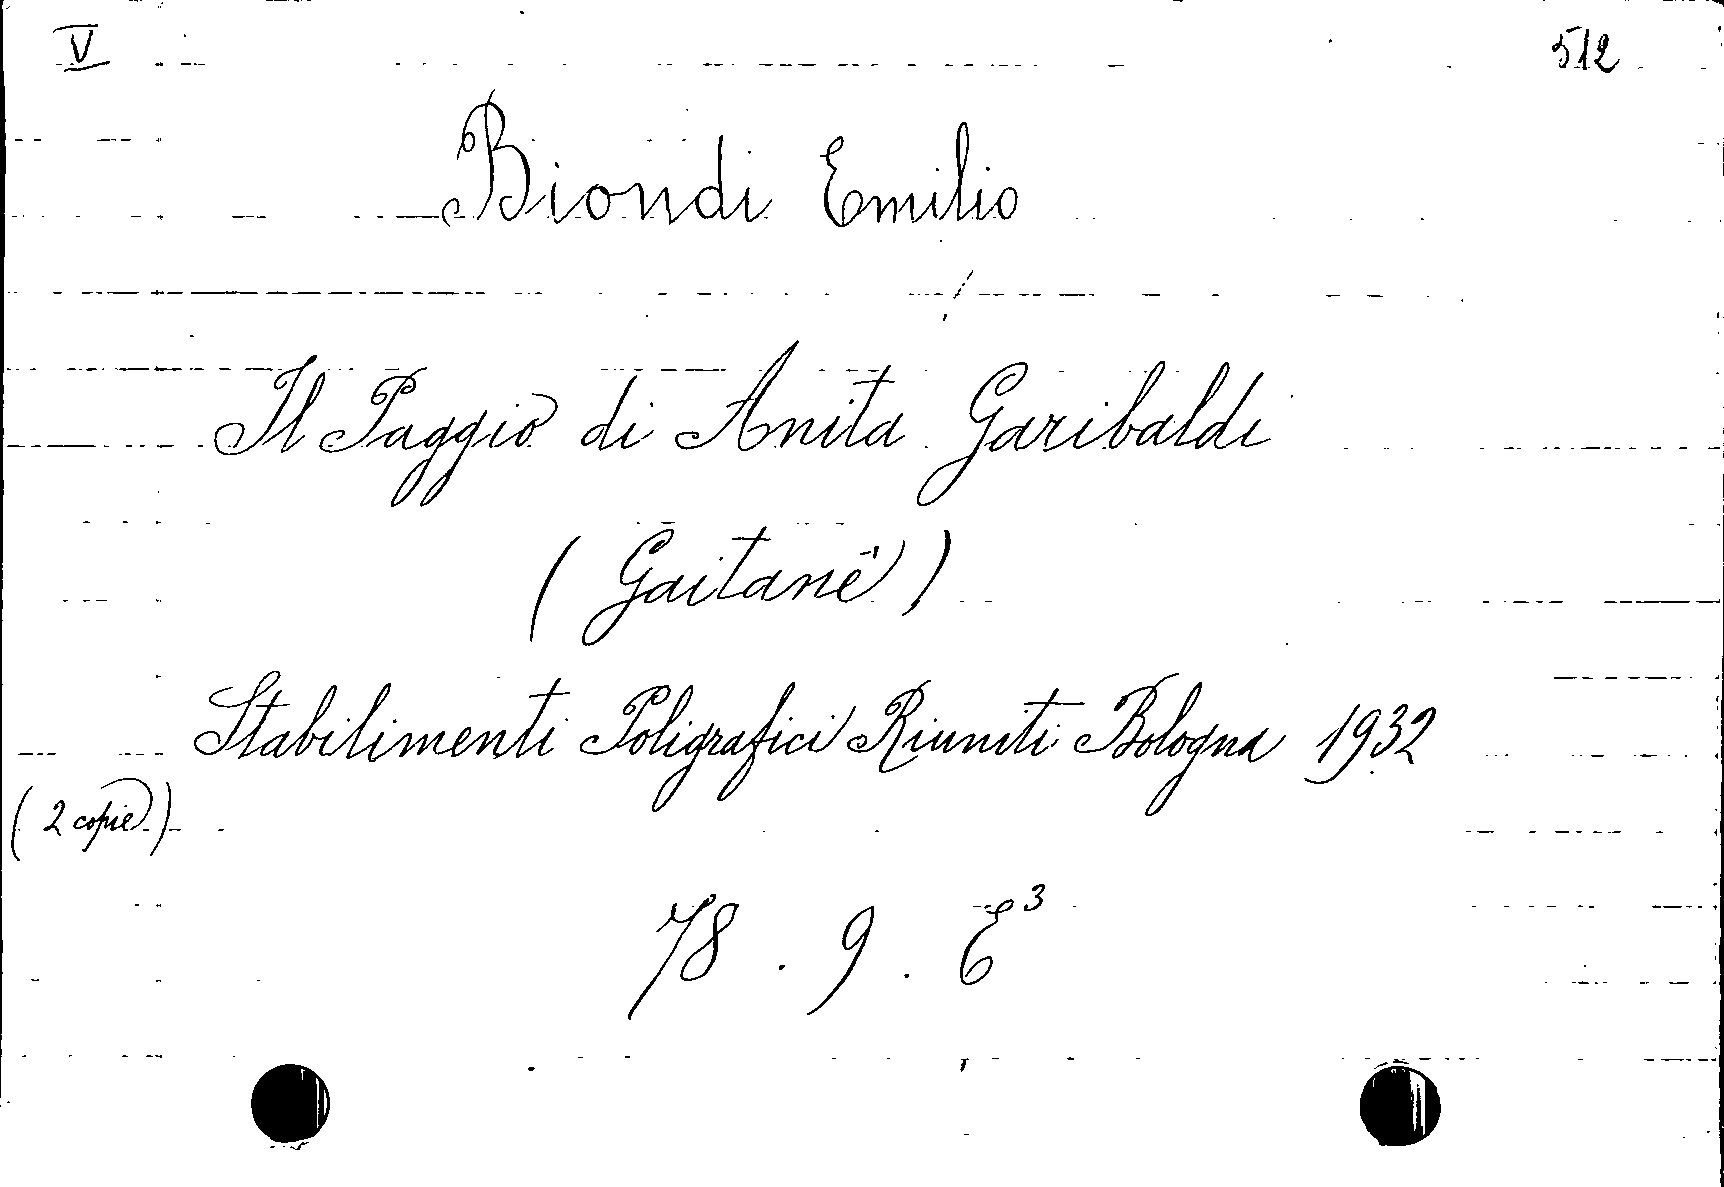 V 512
Biondi Emilio
Il Paggio di Anita Garibaldi
(Gaitanê)
Stabilimenti Poligrafici Riuniti Bologna 1932
(2 copie)
78 . 9 . E³